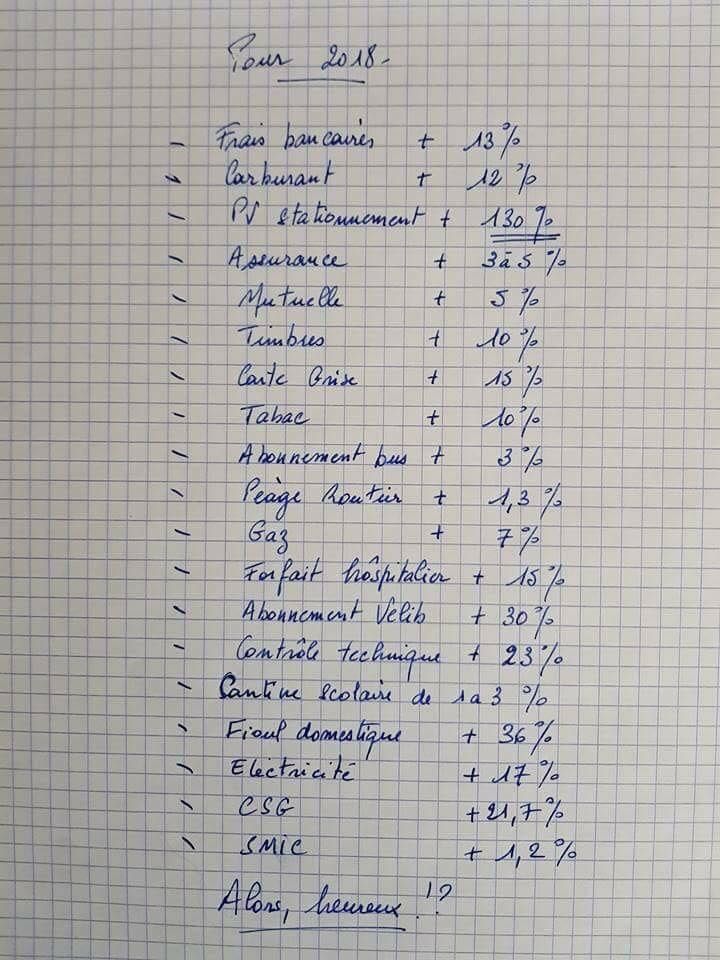 Pour 2018-
- Frais bancaires + 13%
- Carburant + 12%
- PV stationnement + 130%
- Assurance + 3 à 5%
- Mutuelle + 5%
- Timbres + 10%
- Carte Grise + 15%
- Tabac + 10%
- Abonnement bus + 3%
- Péage Routier + 1,3%
- Gaz + 7%
- Forfait hôspitalier + 15%
- Abonnement Velib + 30%
- Contrôle technique + 23%
- Cantine scolaire de 1 a 3 %
- Fioul domestique + 36%
- Electricité + 17%
- CSG + 21,7%
- SMIC + 1,2%
Alors, heureux !?